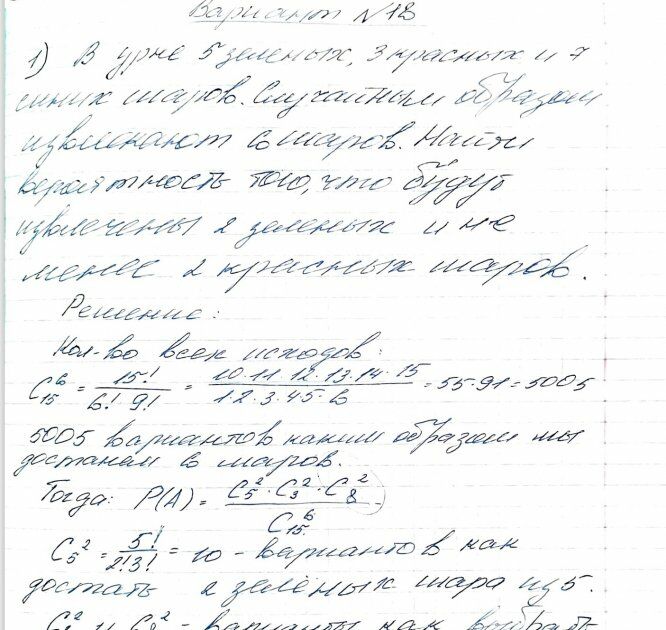 Вариант №18
1) В урне 5 зеленых, 3 красных и 7
синих шаров. Случайным образом
извлекают 6 шаров. Найти
вероятность того, что будут
извлечены 2 зеленых и не
менее 2 красных шаров.
Решение:
Кол-во всех исходов:
C₁₅⁶ = 15! / 6! 9! = 10·11·12·13·14·15 / 1·2·3·4·5·6 = 55·91 = 5005
5005 вариантов каким образом мы
достанем 6 шаров.
Тогда: P(A) = C₅²·C₃²·C₈² / C₁₅⁶
C₅² = 5! / 2!3! = 10 - вариантов как
достать 2 зелёных шара из 5.
варианты как выбрать